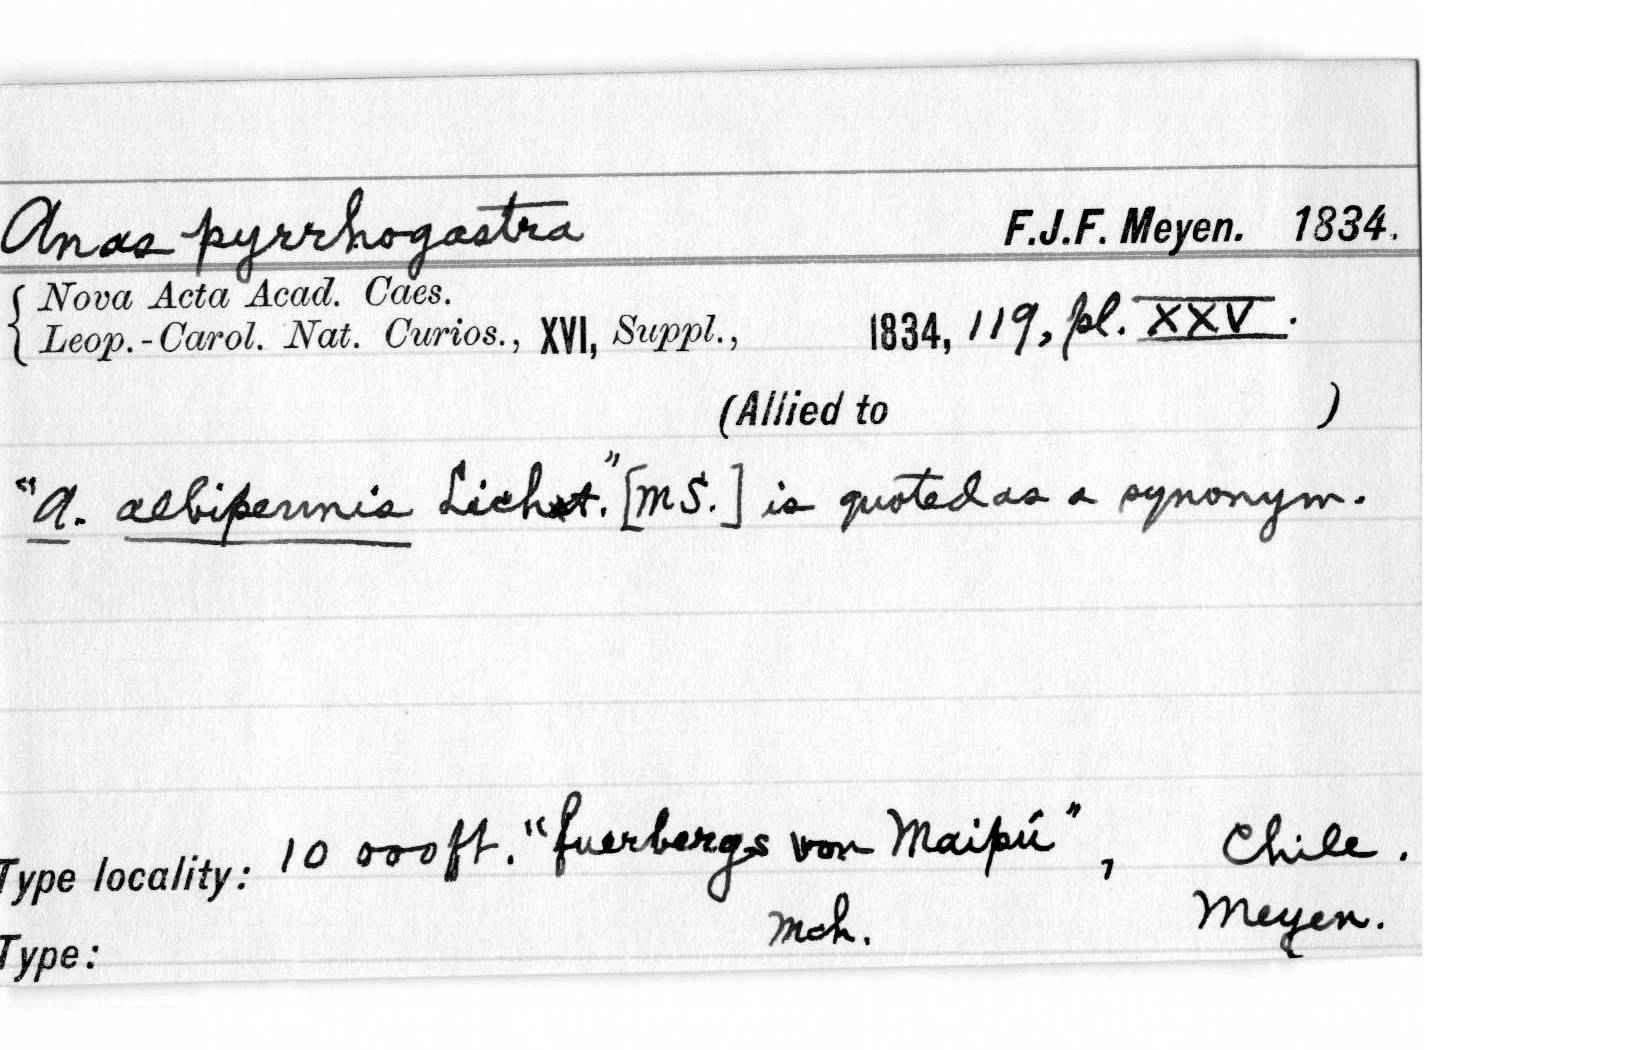 Anas pyrrhogastra F.J.F. Meyen. 1834.
{ Nova Acta Acad. Caes.
Leop.-Carol. Nat. Curios., XVI, Suppl., 1834, 119, pl. XXV.
(Allied to )
"A. albipennis Licht." [MS.] is quoted as a synonym.
Type locality: 10 000 ft. "fuerbergs von Maipú", Chile.
Mch. Meyen.
Type: